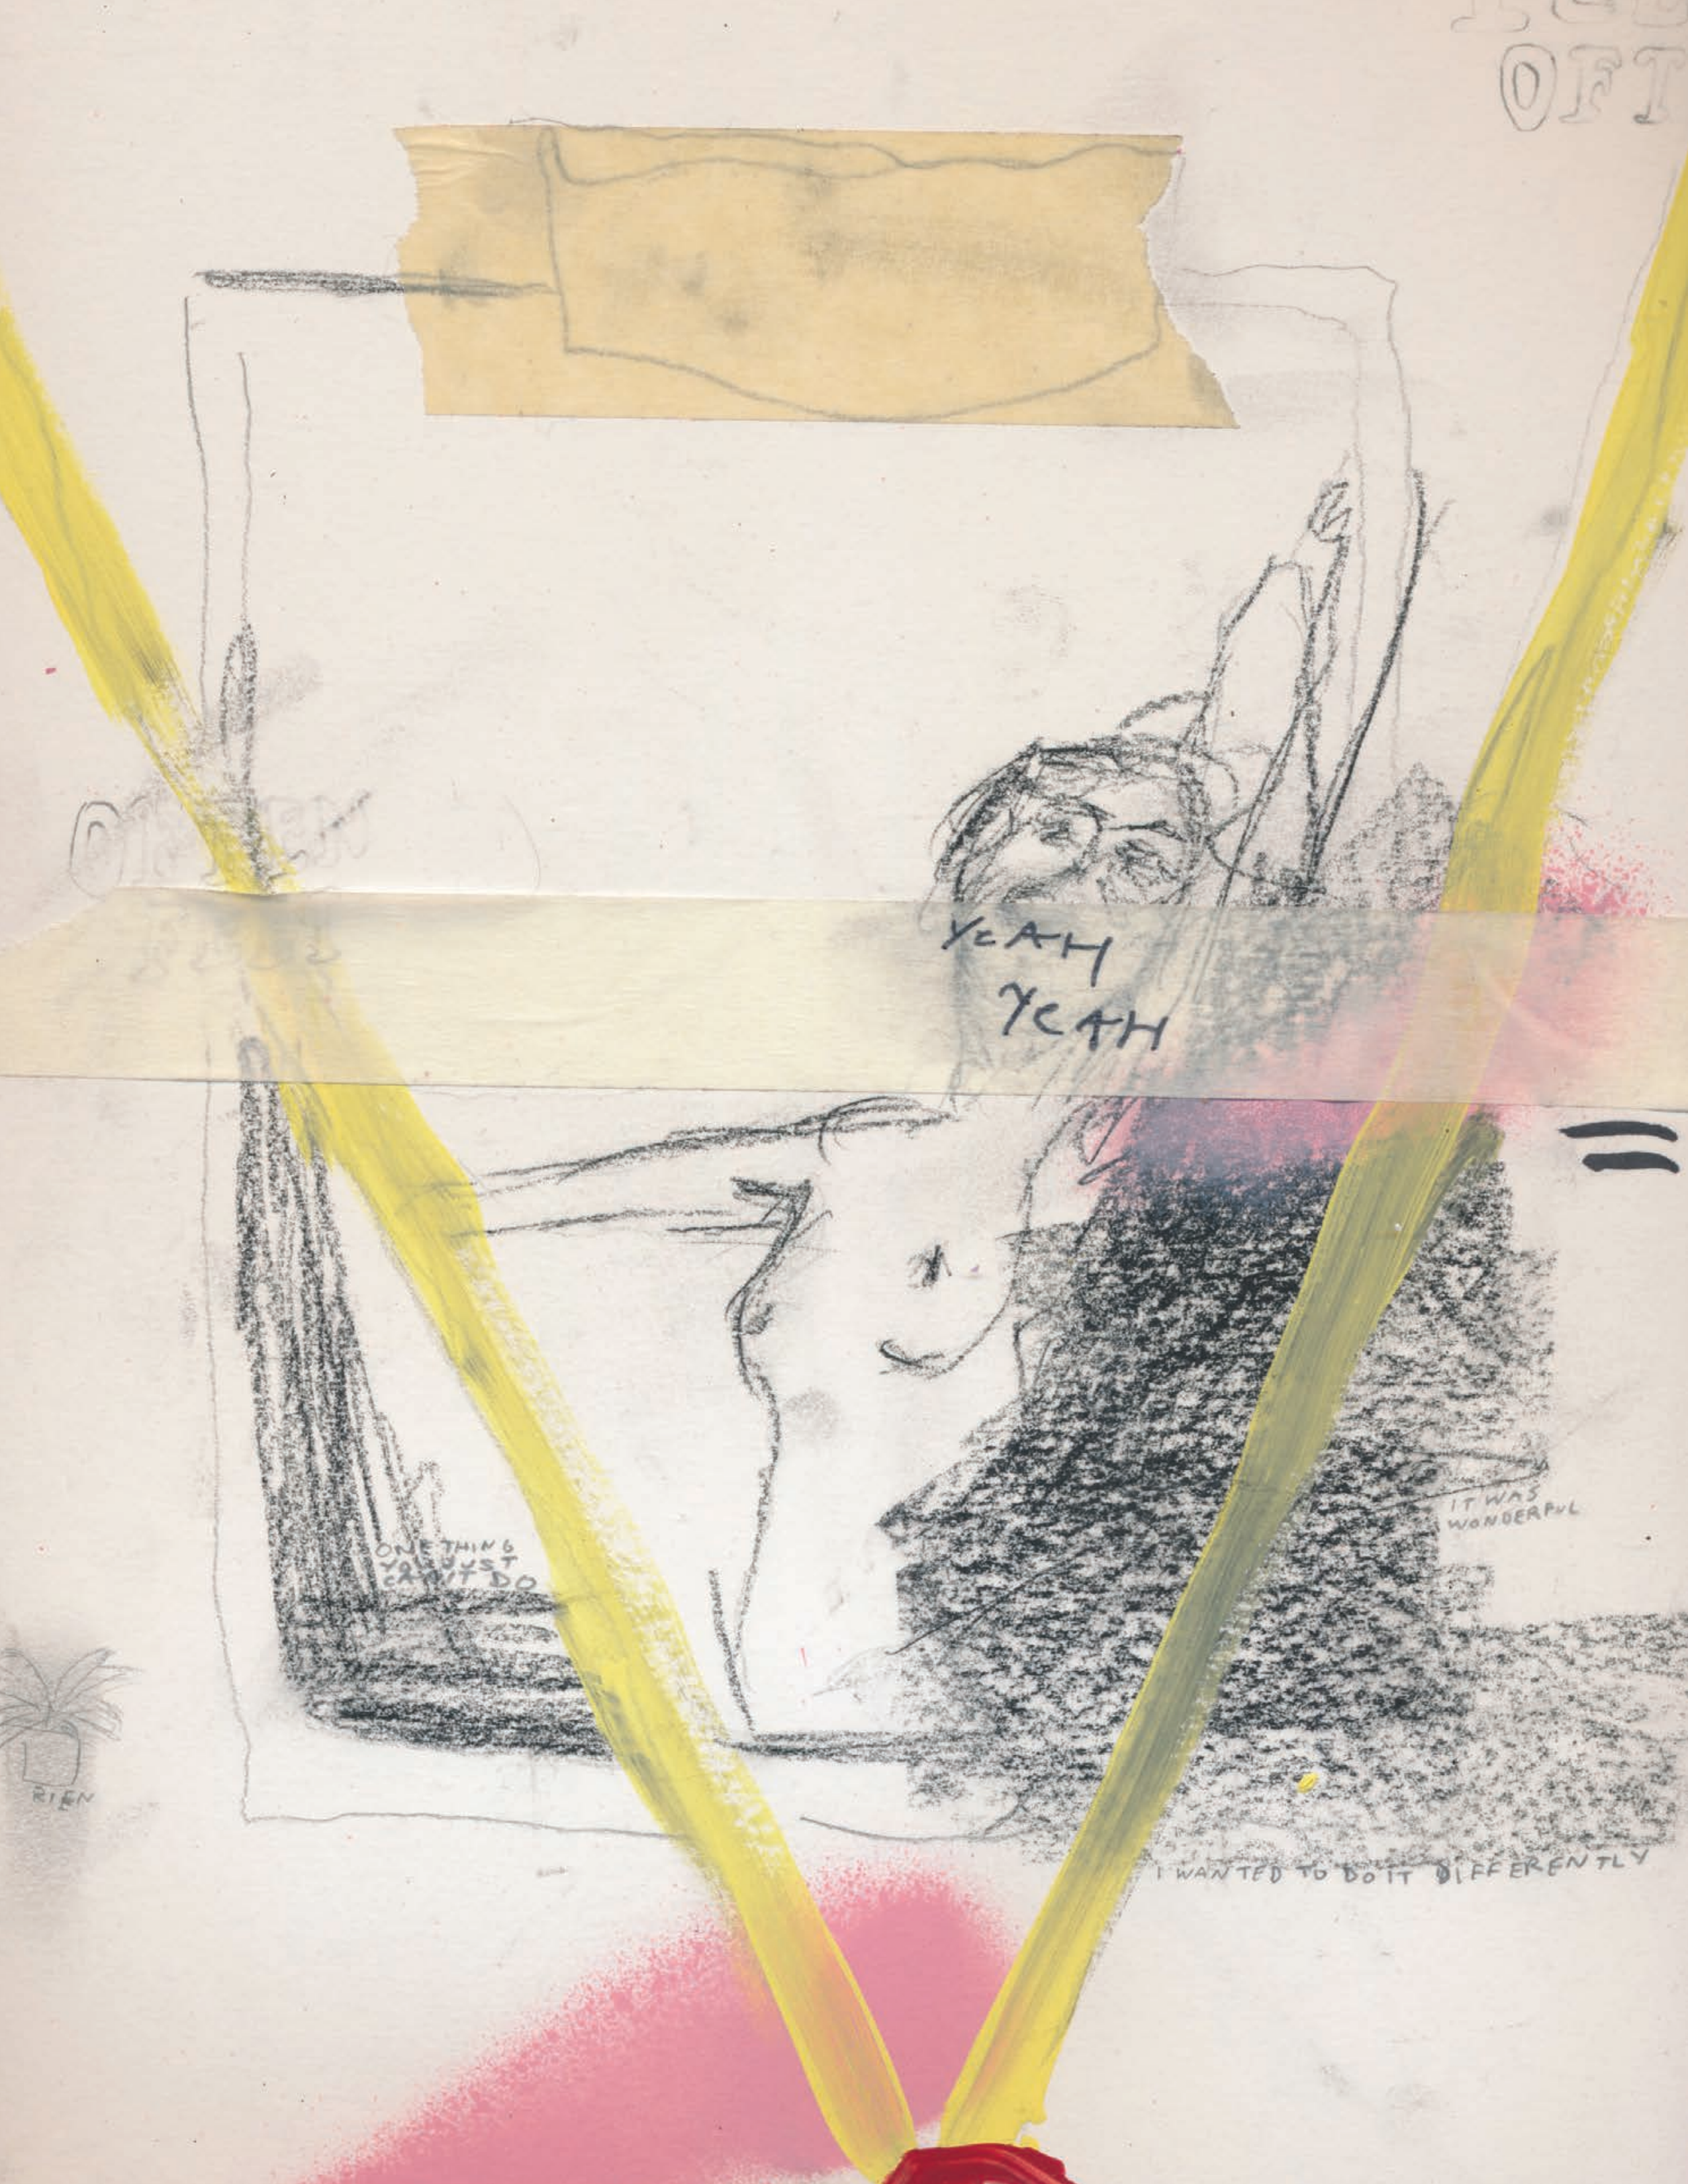 OFT
YEAH
YEAH
ONE THING
YOU JUST
CAN'T DO
IT WAS
WONDERFUL
RIEN
I WANTED TO DO IT DIFFERENTLY